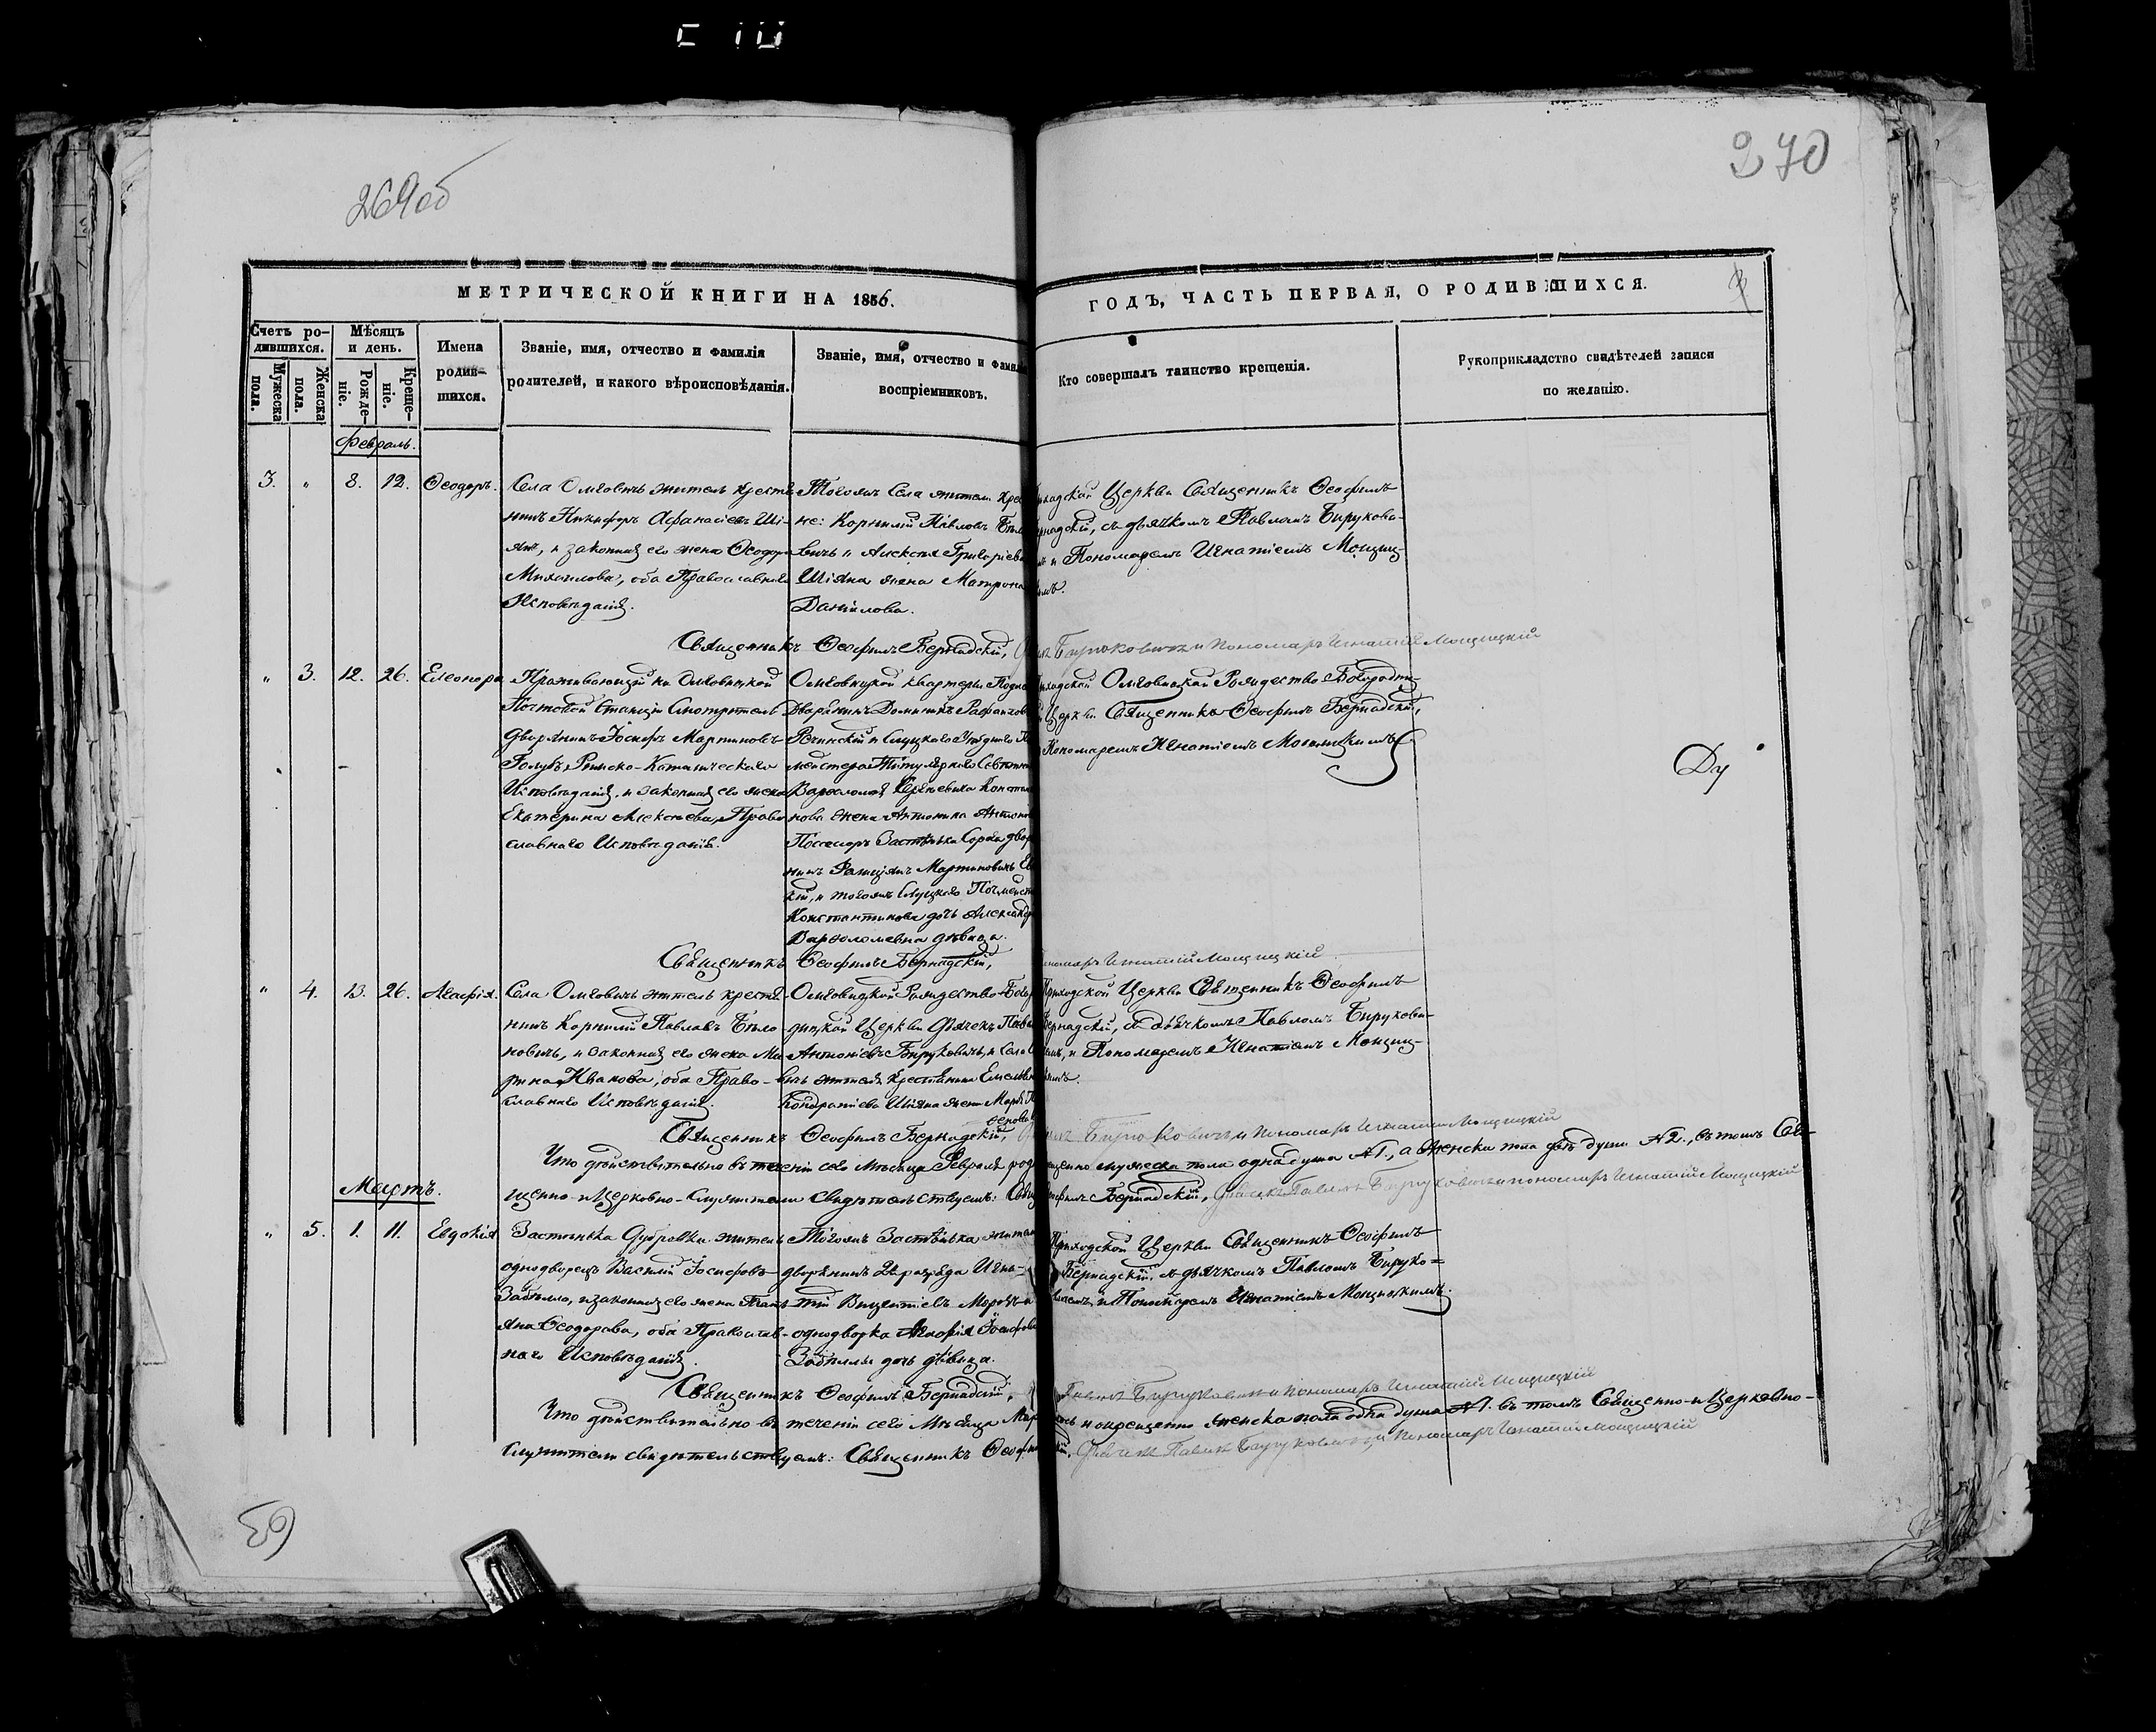 269об
270
МЕТРИЧЕСКОЙ КНИГИ НА 1856.
ГОДЪ, ЧАСТЬ ПЕРВАЯ, О РОДИВШИХСЯ.
Счетъ ро-
дившихся.
Мужеска
пола.
Женска
пола.
Мѣсяцъ
и день.
Рожде-
ніе.
Креще-
ніе.
Имена
родив-
шихся.
Званіе, имя, отчество и фамилія
родителей, и какого вѣроисповѣданія.
Званіе, имя, отчество и фамил
воспріемниковъ.
Кто совершалъ таинство крещенія.
Рукоприкладство свидѣтелей записи
по желанію.
Февраль.
3. " 8. 12. Ѳеодоръ.
Села Омговичъ житель крестья-
нинъ Никифоръ Афанасіевъ Ші-
янъ, и законная его жена Ѳеодора
Михаилова, оба Православнаго
Исповѣданія.
Тогожъ Села жители крес
не: Корнилій Павловъ Бѣло
вичъ и Алексѣя Григоріева
Шіяна жена Матрона
Данилова.
Приходской Церкви Священникъ Ѳеофилъ
Бернадскій, съ дьячкомъ Павломъ Бирукови-
и Пономаремъ Игнатіемъ Мощиц-
кимъ.
Священникъ Ѳеофилъ Бернадскій, Бирюковичъ и пономаръ Игнатій Мощицкій
" 3. 12. 26. Елеонора
Проживающій на Омговицкой
Почтовой Станціи Смотритель
дворянинъ Іосифъ Мартиновъ
Голубъ, Римско-Католическаго
Исповѣданія, и законная его жена
Екатерина Алексѣева, Право-
славнаго Исповѣданія.
Омговицкой квартеры
Дворянинъ Доминикъ
и Слуцкаго Уѣзднаго
мейстера Титулярнаго Совѣтника
Варѳоломѣя Констан
нова жена Антонина Антоно
Поссесоръ Застѣнка дворя
нинъ Мартиновичъ
кій, и тогожъ Слуцкаго Почмейст
Константинова дочь Александра
Варѳоломеевна дѣвица.
Приходской Омговицкой Рождество-Богородиц-
Церкви Священникъ Ѳеофилъ Бернадскій,
Пономаремъ Игнатіемъ Мощицкимъ
Ду
Священникъ Ѳеофилъ Бернадскій, пономаръ Игнатій Мощицкій
" 4. 13. 26. Агафія.
Села Омговичъ житель крестья-
нинъ Корнилій Павловъ Бѣло-
новичъ, и законная его жена Ма-
рина Иванова, оба Право-
славнаго Исповѣданія.
Омговицкой Рождество-Бого
дицкой Церкви Дьячекъ Павелъ
Антоніевъ Бируковичъ, и Села
вичъ жителя крестьянина Емельяна
Кондратіева Шіяна жена Марѳа
Приходской Церкви Священникъ Ѳеофилъ
Бернадскій, съ дьячкомъ Павломъ Бирукови-
чемъ, и Пономаремъ Игнатіемъ Мощиц-
кимъ.
Священникъ Ѳеофилъ Бернадскій, Бирюковичъ и пономаръ Игнатій Мощицкій
Что дѣйствительно въ теченіи сего Мѣсяца Февраля мужеска пола одна душа №1., а Женска пола двѣ души №2., въ томъ Свя-
щенно-и Церковно-Служители свидѣтельствуемъ: Бернадскій, дьячекъ Павелъ Бируковичъ и пономаръ Игнатій Мощицкій
Мартъ.
" 5. 1. 11. Евдокія
Застѣнка Дубровки житель
однодворецъ Василій Іосифовъ
Забѣлло, и законная его жена Тать-
яна Ѳеодорова, оба Православ-
наго Исповѣданія.
Тогожъ Застѣнка жители
дворянинъ 2 разряда Игна-
тій Вицентіевъ и
однодворка Агафія Іосифова
Забѣллы дочь дѣвица.
Приходской Церкви Священникъ Ѳеофилъ
Бернадскій, съ дьячкомъ Павломъ Бируко-
вичемъ, и Пономаремъ Игнатіемъ Мощицкимъ.
Священникъ Ѳеофилъ Бернадскій, Павелъ Бируковичъ и пономаръ Игнатій Мощицкій
Что дѣйствительно въ теченіи сего Мѣсяца Мар и окрещенно женска пола одна душа №1. въ томъ Священно-и Церковно-
служители свидѣтельствуемъ: Священникъ Ѳеоф Дьячекъ Павелъ Бируковичъ и пономаръ Игнатій Мощицкій